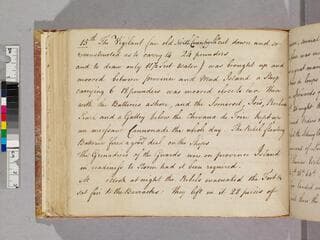 15th The Vigilant (an old North Country Cat cut down and so
constructed as to carry 14 24 pounders
and to draw only 11½ feet water) was brought up and
moored between province and Mud Island a Sloop
carrying 6 18 pounders was moored close to her. These
with the Batteries ashore, and the Somerset, Isis,
and a Galley below the Chevaux de Frise kept up
an incessant Cannonade the whole day. The Rebel floating
Batteries fired a good deal on the Ships
The Grenadiers of the Guards were on province Island
in readiness to Storm had it been required.
At oclock at night the Rebels evacuated the Fort &
set fire to the Barracks: they left in it 28 pieces of